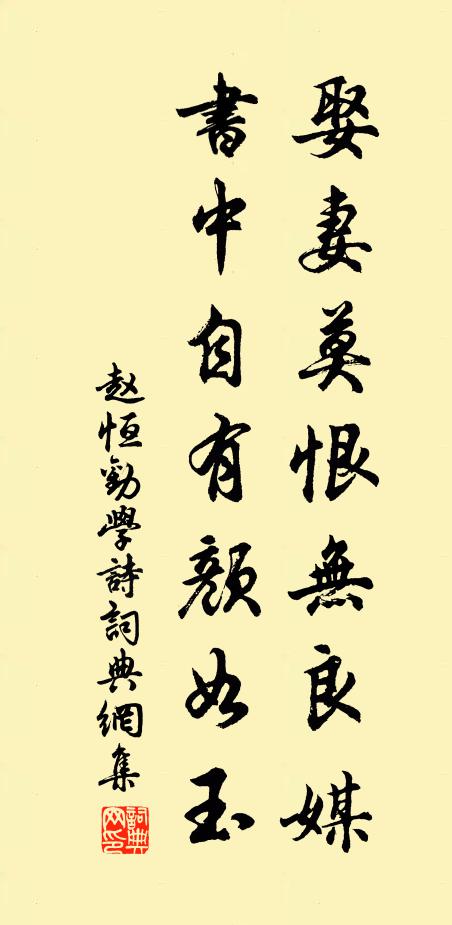 娶妻莫恨無良媒
書中自有顏如玉
赵恒勸學詩詞典網集
詞典网印